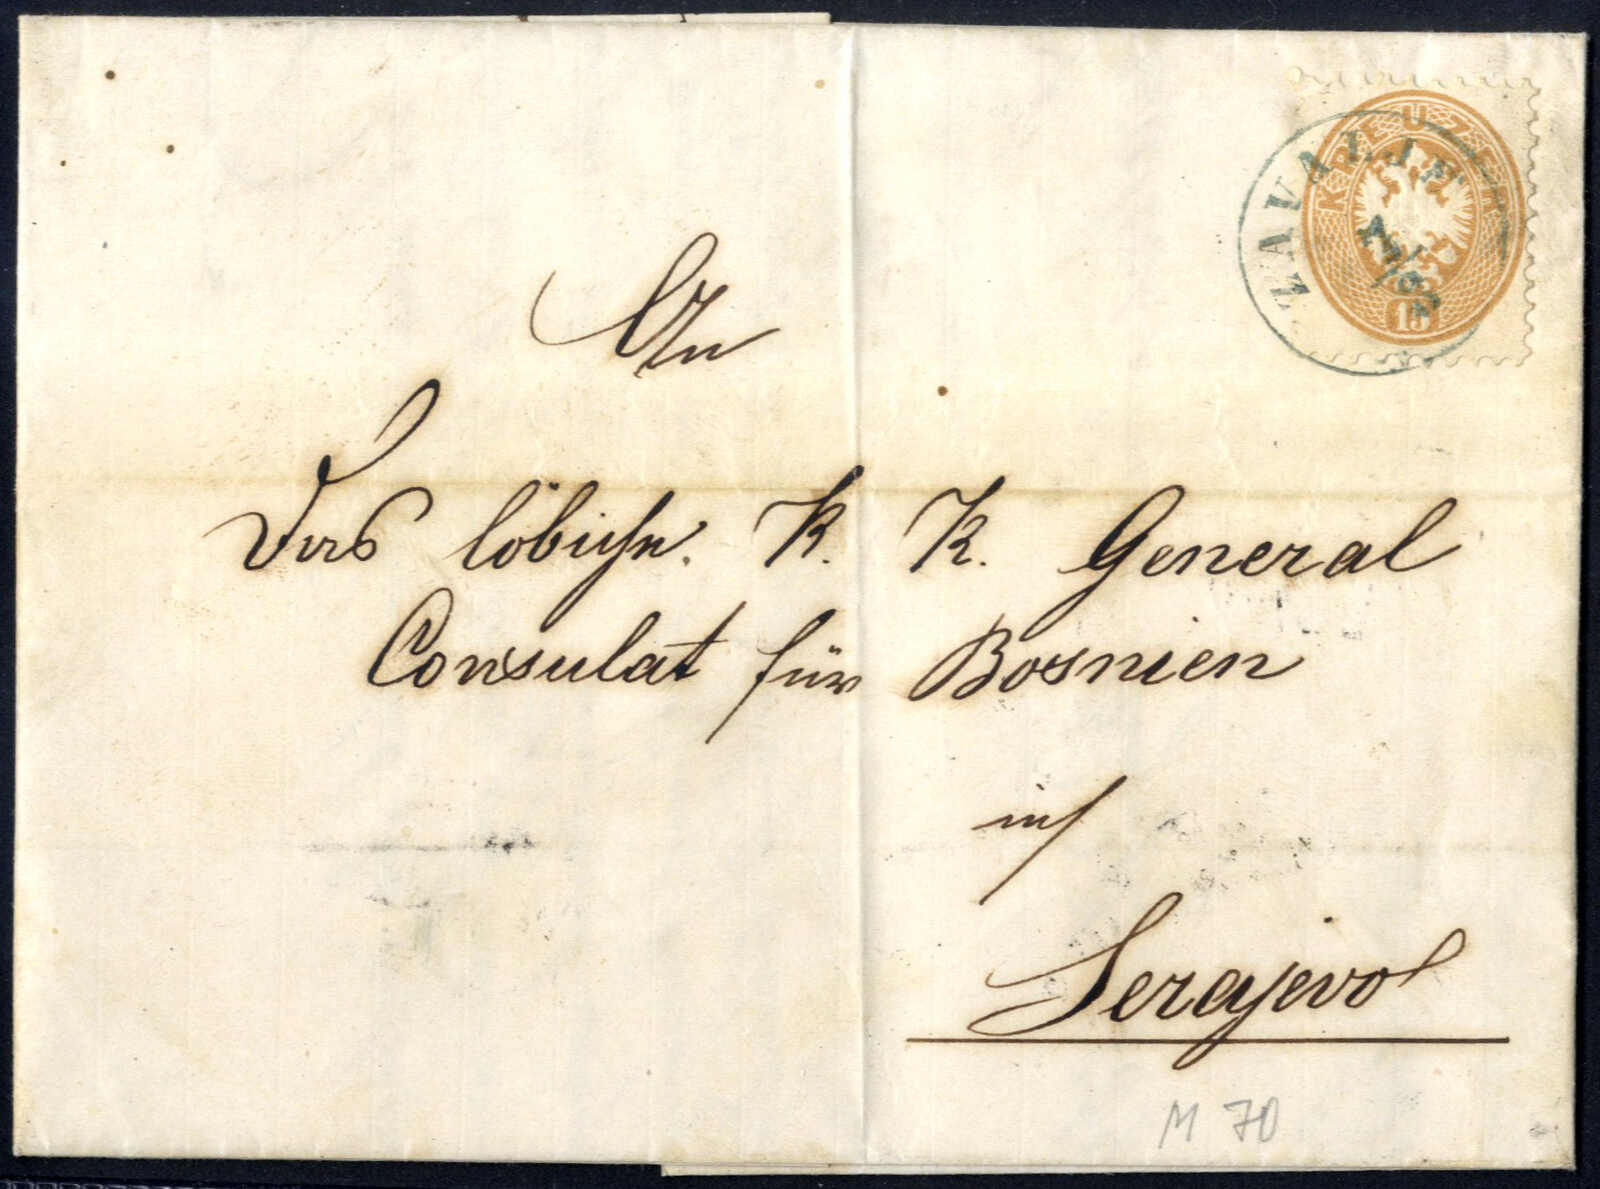 KREUZER
15
ZAVALJE
An
Das löbliche. K. K. General
Consulat für Bosnien
in
Serajevo
M 70